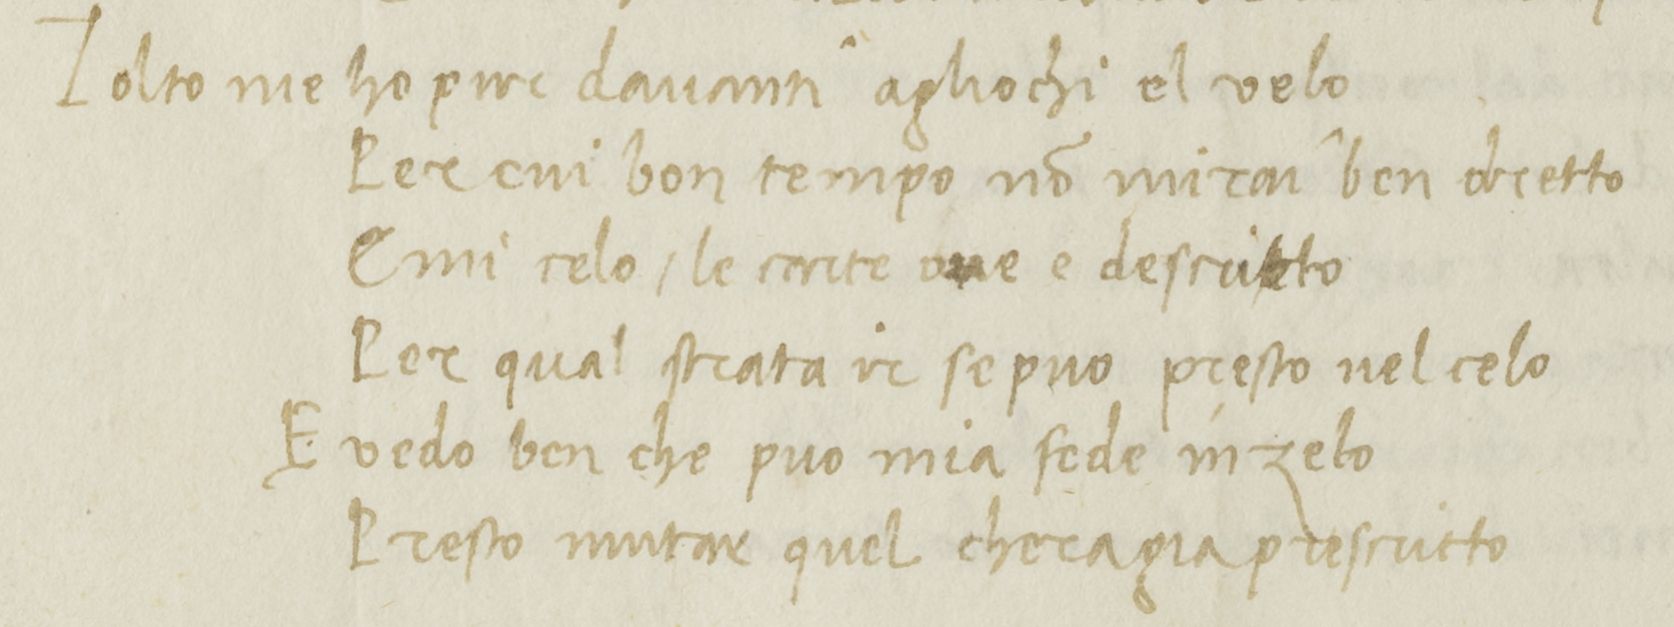 Tolto me ho pure davanti agliochi el velo
Per cui bon tempo nõ mirai ben dretto
E mi celo / le carte oue e descritto
Per qual strata ir se puo presto nel celo
E vedo ben che puo mia fede in zelo
Presto mutar quel chera gia prescritto